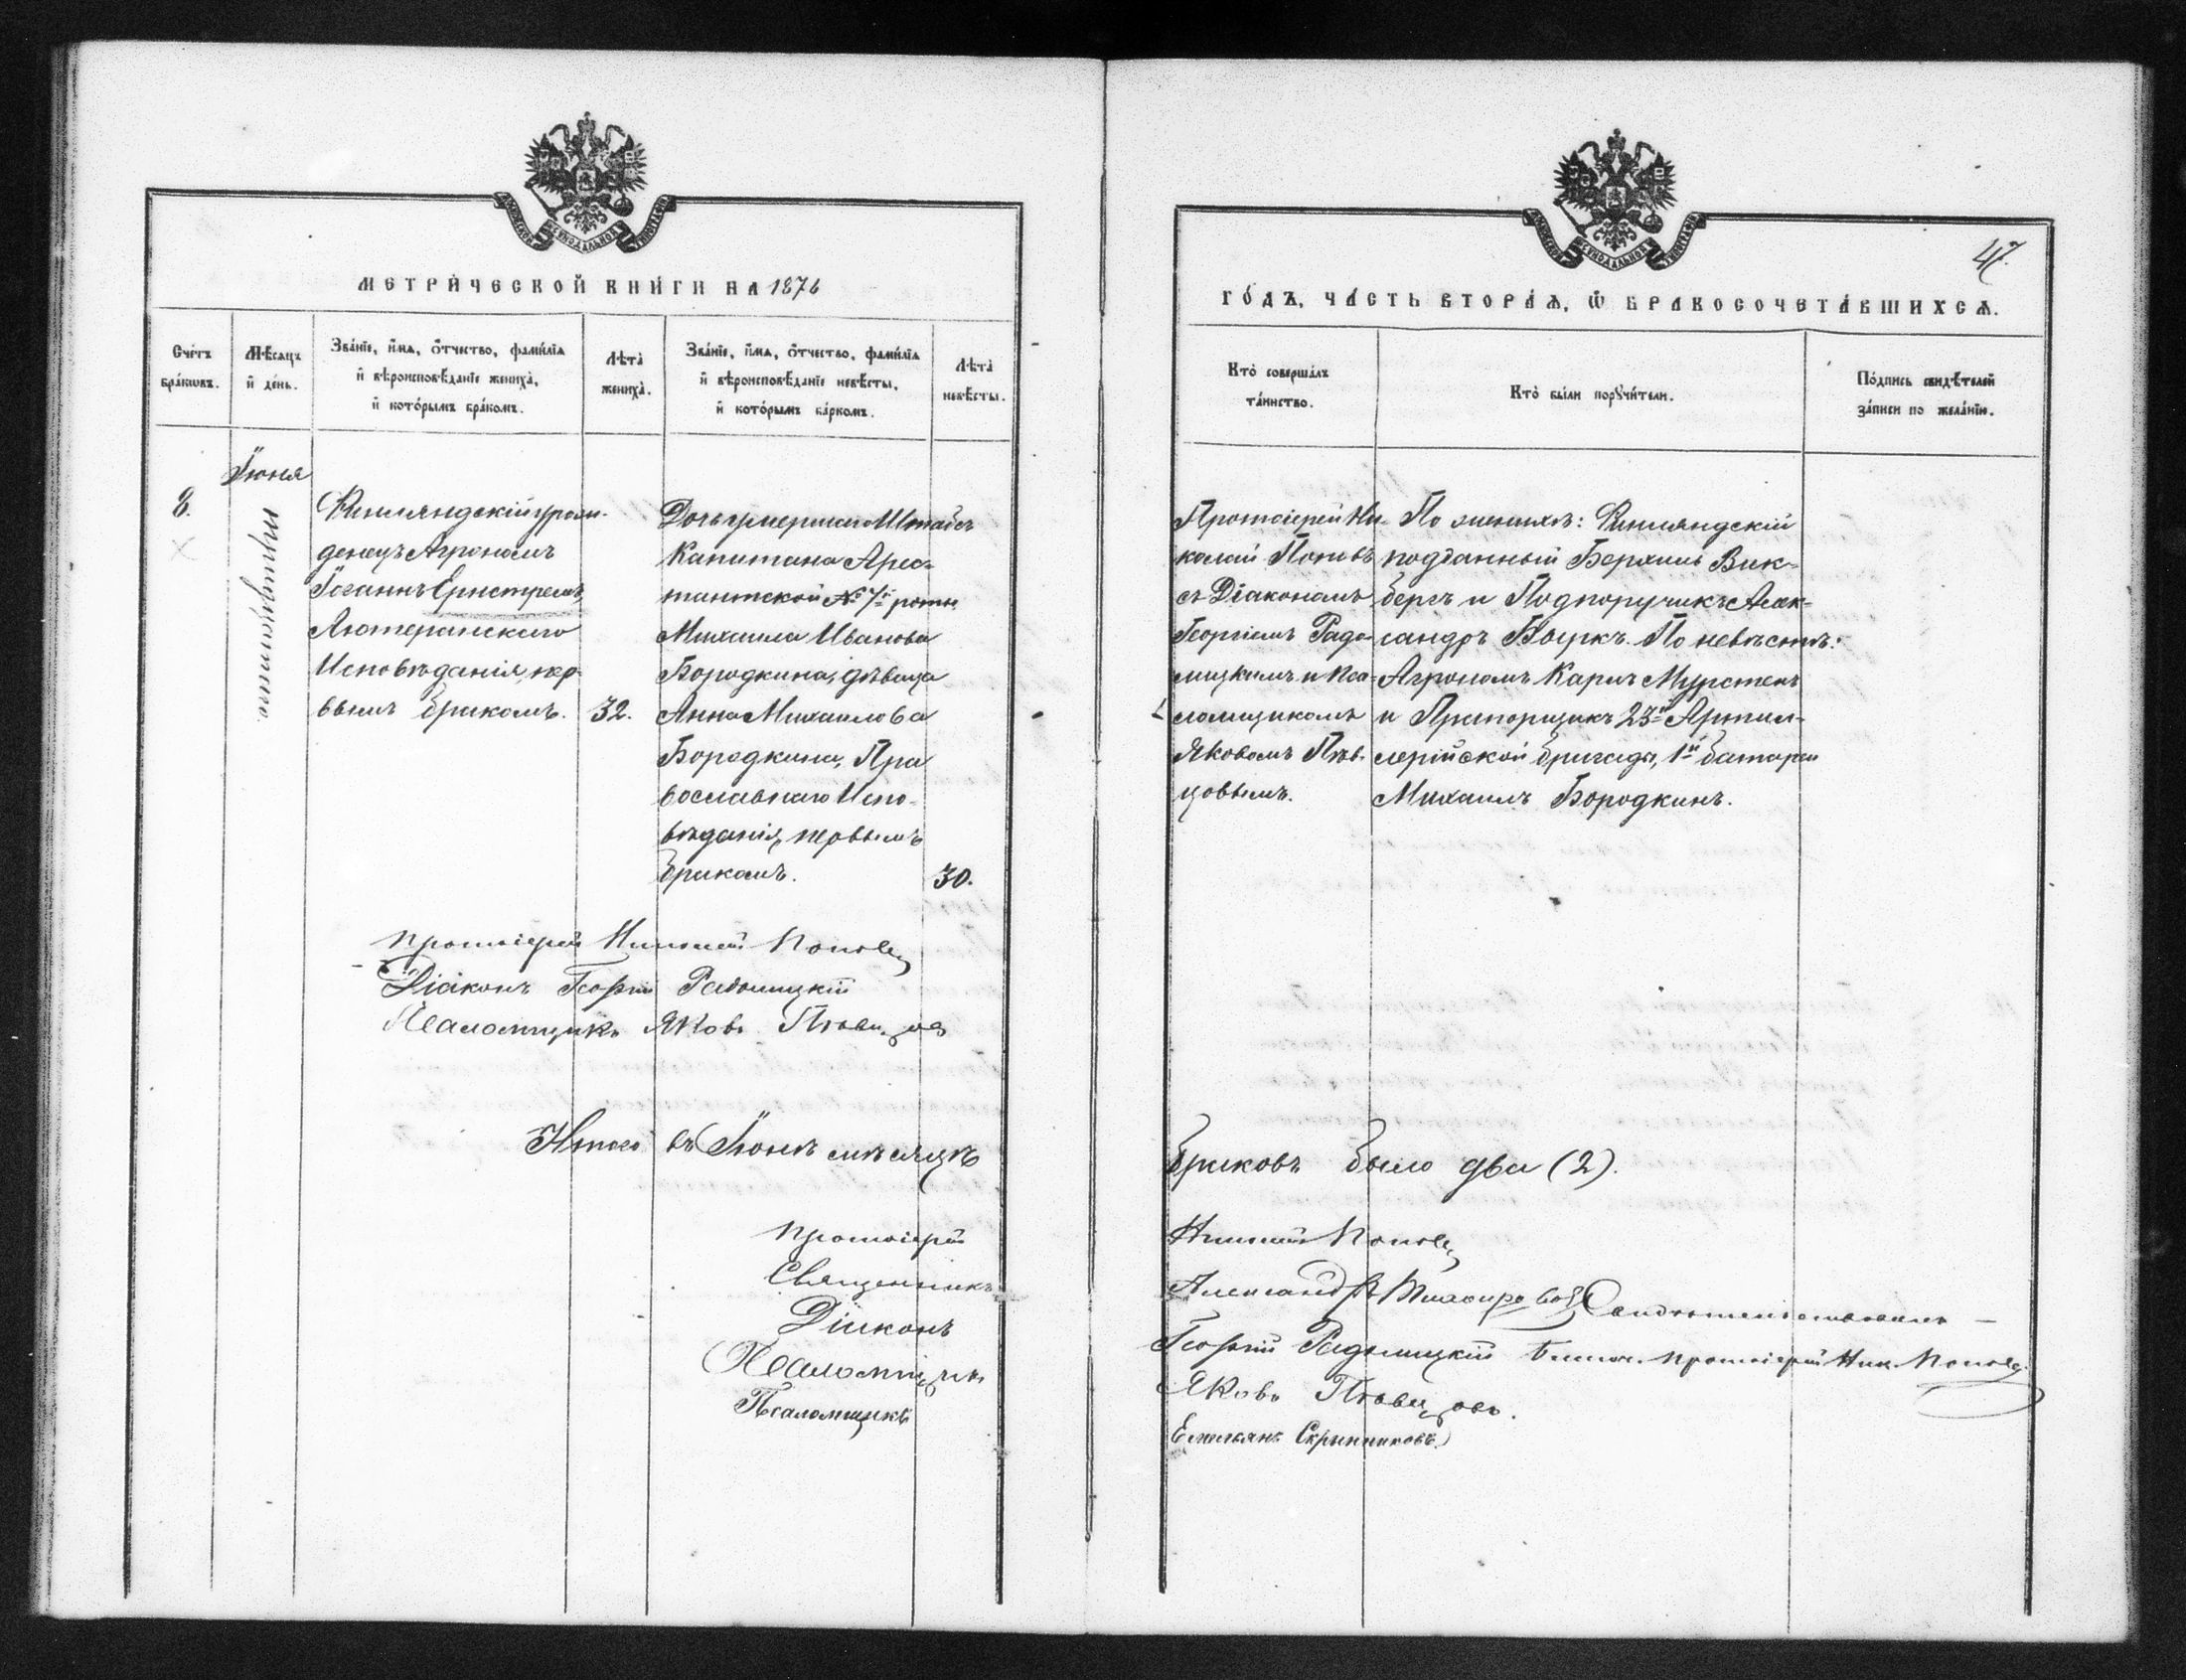 МЕТРИ́ЧЕСКОЙ КНИ́ГИ НА 1876
Сче́тъ бра́ковъ.
Мѣ́сяцъ и҆ де́нь.
Зва́нїе, и҆́мѧ, ѻ҆́тчество, фами́лїѧ и҆ вѣроисповѣ́данїе жениха̀, и҆ кото́рымъ бра́комъ.
Лѣ́та жениха̀.
Зва́нїе, и҆́мѧ, ѻ҆́тчество, фами́лїѧ и҆ вѣроисповѣ́данїе невѣ́сты, и҆ кото́рымъ ба́ркомъ.
Лѣ́та невѣ́сты.
Іюня
8.
тридцатаго
Финляндскій уроже-
денецъ Агрономъ
Іоганнъ Ернстремъ,
Лютеранскаго
Исповѣданія, пер-
вымъ бракомъ.
32.
Дочь умершаго Штабсъ
Капитана Арес-
тантской № 7й роты
Михаила Иванова
Бородкина, дѣвица
Анна Михаилова
Бородкина, Пра
вославнаго Испо-
вѣданія, первымъ
бракомъ.
30.
Протоіерей Николай Поповъ
Діаконъ Георгій Радомицкій
Псаломщикъ Яковъ Пѣвцовъ
Итого въ Іюнѣ мѣсяцѣ
Протоіерей
Священникъ
Діаконъ
Псаломщикъ
Псаломщикъ
47.
ГО́ДЪ, ЧА́СТЬ ВТОРА́Ѧ, Ѽ БРАКОСОЧЕТА́ВШИХСѦ.
Кто̀ соверша́лъ та́инство.
Кто̀ бы́ли порꙋчи́тели.
По́дпись свидѣ́телей за́писи по жела́нїю.
Протоіерей Ни-
колай Поповъ
съ Діакономъ
Георгіемъ Радо-
мицкимъ и пса-
ломщикомъ
Яковомъ Пѣв-
цовымъ.
По женихѣ: Финляндскій
подданный Вик-
бергъ и Подпоручикъ Алек-
сандръ По невѣстѣ:
Агрономъ Карлъ Мурстенъ
и Прапорщикъ 23й Артил-
лерійской бригады, 1й батареи
Михаилъ Бородкинъ.
браковъ было два (2).
Николай Поповъ
Александръ Тихомировъ Свидѣтельствовалъ
Георгій Радомицкій Благоч. Протоіерей Ник. Поповъ
Яковъ Пѣвцовъ.
Емельянъ Скрынниковъ